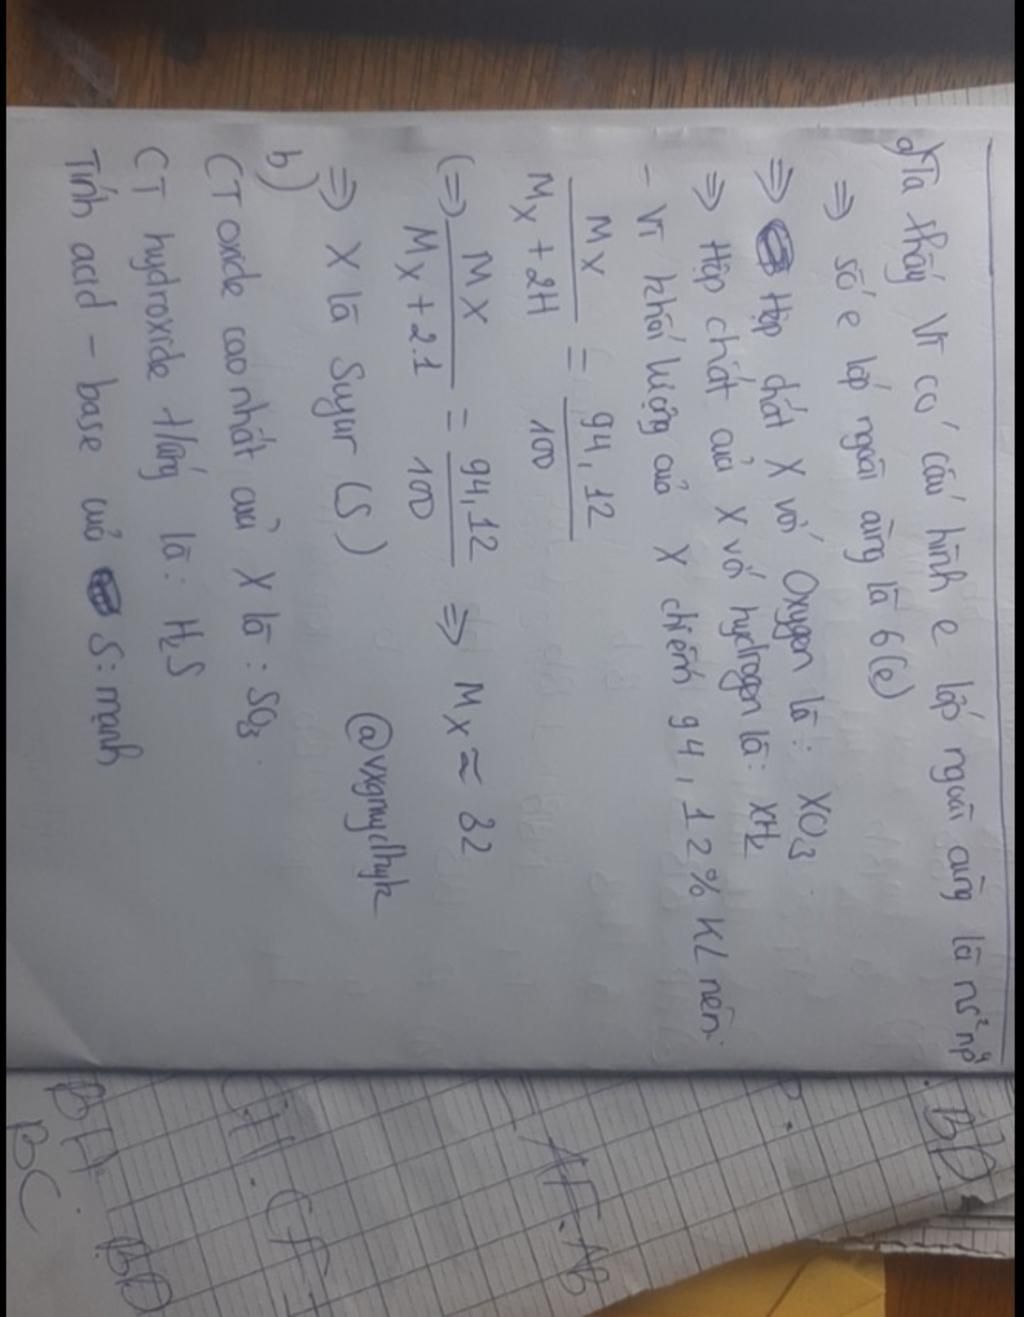 a) Ta thấy Vì có cấu hình e lớp ngoài cùng là ns²np⁴
=> số e lớp ngoài cùng là 6(e)
=> Hợp chất X với Oxygen là: XO₃
=> Hợp chất của X với hydrogen là: XH₂
- Vì khối lượng của X chiếm 94,12% KL nên:
Mx / Mx + 2H = 94,12 / 100
(=) Mx / Mx + 2.1 = 94,12 / 100 => Mx ≈ 32
=> X là Suyur (S)
@vxgmyclhyk
b)
CT oxide cao nhất của X là: SO₃
CT hydroxide t/ứng là: H₂S
Tính acid - base của S: mạnh
BD
AF. AB
CH. CF
BH. BD
BC